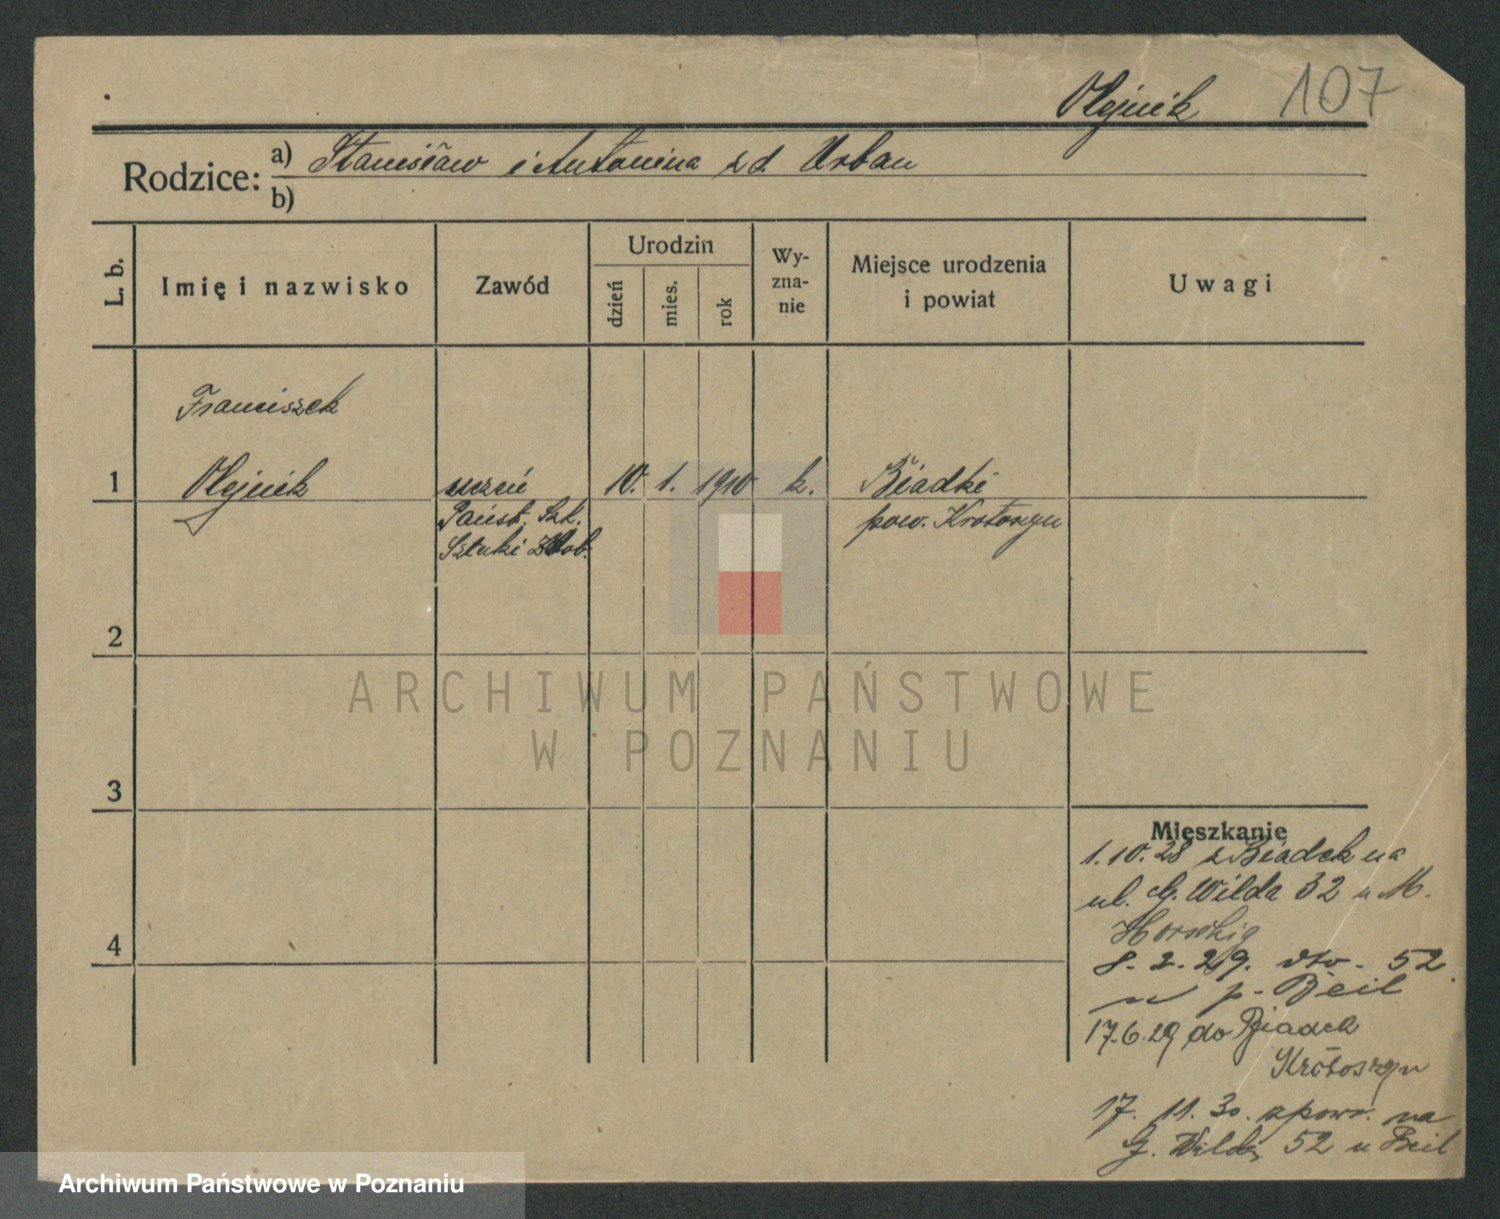 Olejnik 107
Rodzice: a) Stanisław i Antonina z d. Urban
b)
L. b.
Imię i nazwisko
Zawód
Urodzin
dzień
mies.
rok
Wy-
zna-
nie
Miejsce urodzenia
i powiat
Uwagi
Franciszek
1 Olejnik uczeń 10. 1. 1910 k. Biadki
Państ. Szk. pow. Krotoszyn
Sztuki Zdob.
2
3
4
Mieszkanie
1.10.28 z Biadek na
ul. G. Wilda 32 u M.
Horschig
8. 2. 29. dto - 52
u p. Beil
17.6.29 do Biadek
Krotoszyn
17. 11. 30. z powr. na
G. Wilda 52 u Beil
ARCHIWUM PAŃSTWOWE
W POZNANIU
Archiwum Państwowe w Poznaniu